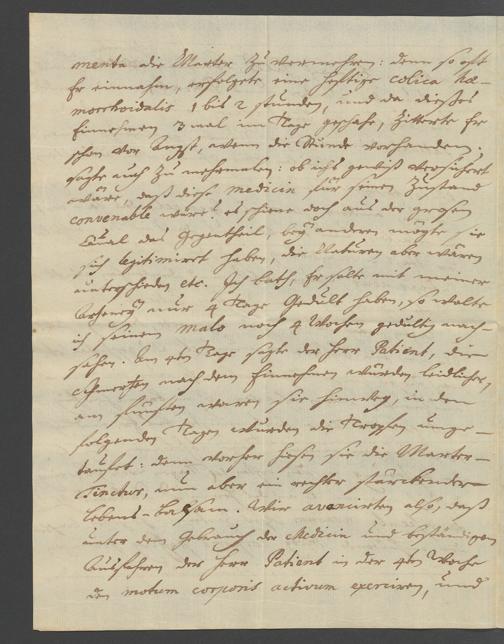 menta die Marter zu vermehren: denn so oft
Er einnahm, erfolgete eine hefftige colica hæ-
morrhoidalis 1 bis 2 stunden, und da dieses
Einnehmen 3 mal im Tage geschahe, zitterte Er
schon vor Angst, wenn die Stunde vorhanden,
sagte auch zu mehrmalen: ob ichs gewiß versichert
wäre, daß diese medicin für seinen Zustand
convenable wäre? es schiene doch aus der großen
Qual das Gegentheil, bey anderen mögte sie
sich legitimiret haben, die Naturen aber wären
unterschieden etc. Ich bath, Er solte mit meiner
Arzeney nur 4 Tage Gedult haben, so wolte
ich seinem malo noch 4 Wochen gedultig nach-
sehen. Am 4ten Tage sagte der Herr Patient, die
Schmertzen nach dem Einnehmen würden leidlicher,
am fünften waren sie hinweg, in den
folgenden Tagen wurden die Tropfen umge-
taufet: denn vorher hiesen sie die Marter-
Tinctur, nun aber ein rechter stärckender
Lebens-Balsam. Wir avancirten also, daß
unter dem Gebrauch der Medicin und beständigen
Ausfahren der Herr Patient in der 4ten Woche
den motum corporis activum exerciren, und